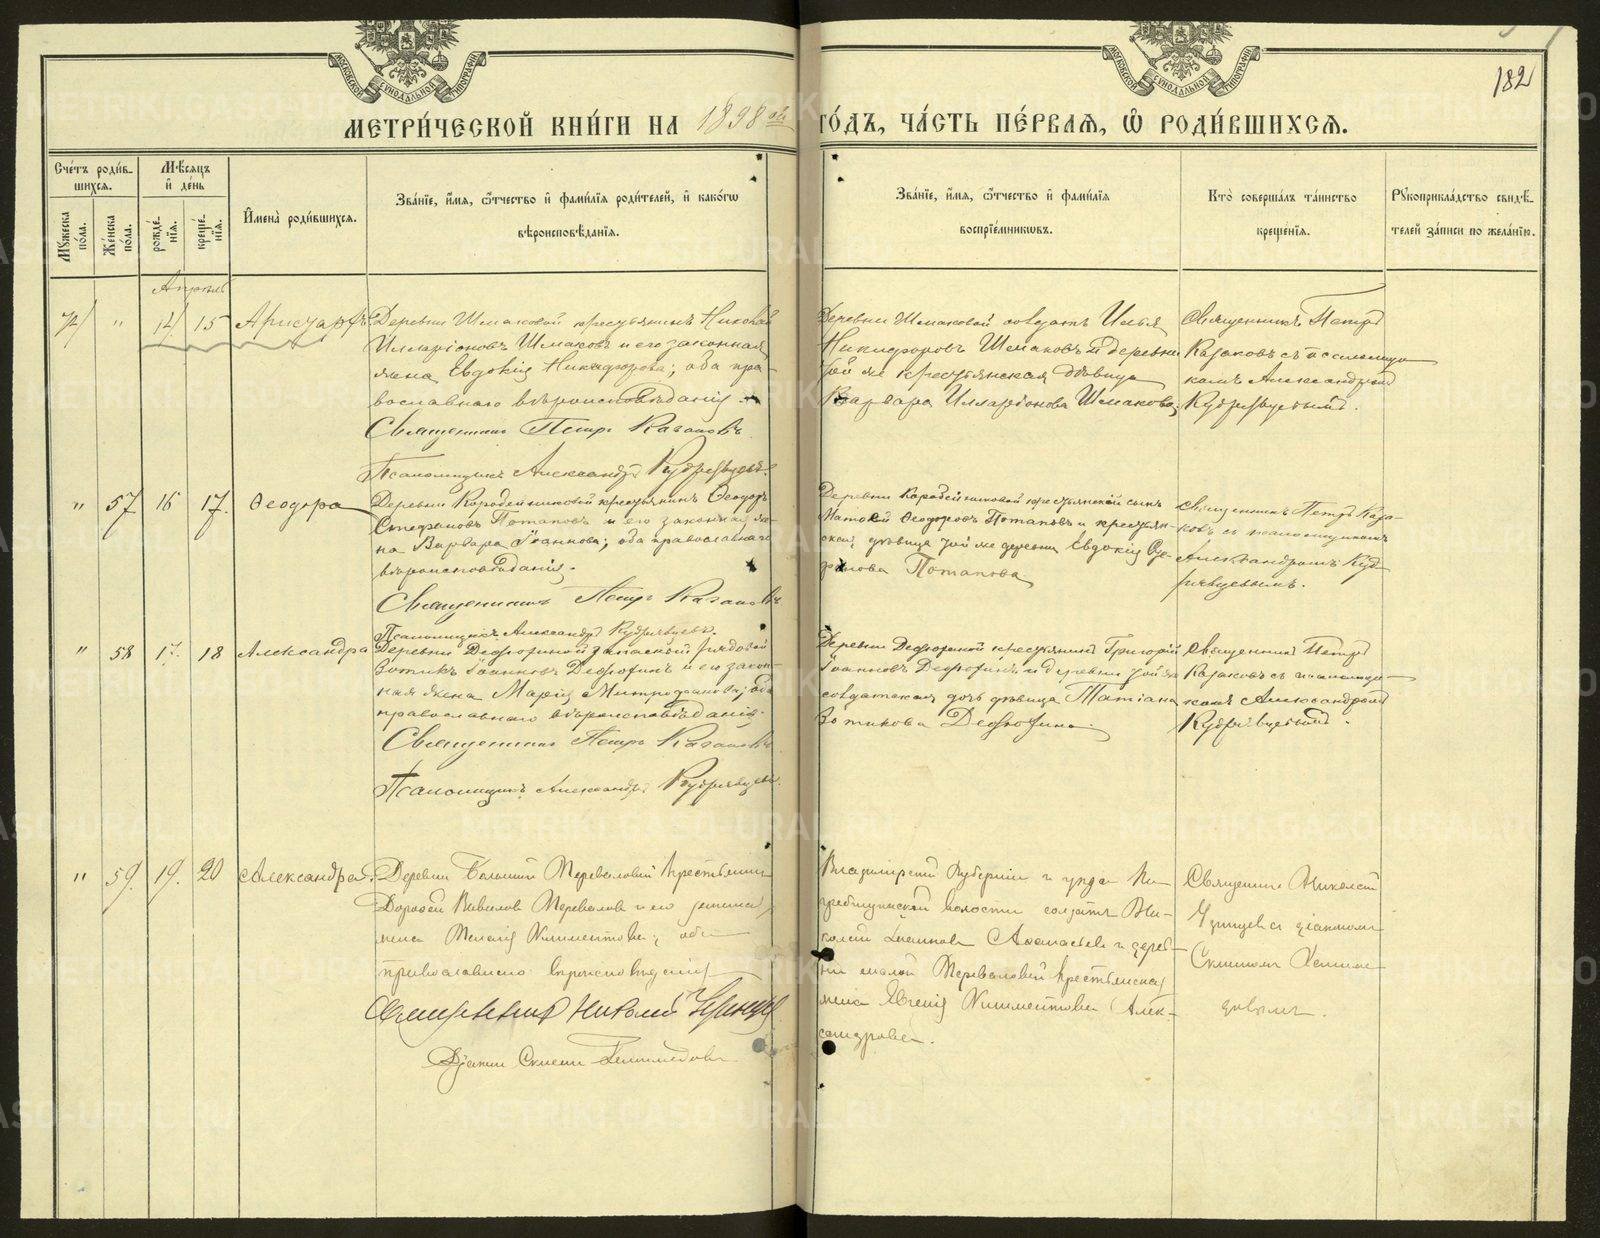 МОСКОВСКОЙ СУНОДАЛЬНОЙ ТИПОГРАФІИ
МОСКОВСКОЙ СУНОДАЛЬНОЙ ТИПОГРАФІИ
182
МЕТРИ́ЧЕСКОЙ КНИ́ГИ НА 1898 ый ГО́ДЪ, ЧА́СТЬ ПЕ́РВАЯ, Ѡ҆ РОДИ́ВШИХСЯ.
Сче́тъ роди́в-
шихся.
Мѣ́сяцъ
и҆ де́нь
Мꙋ́жеска по́ла.
Же́нска по́ла.
рожде́-
нїѧ.
креще́-
нїѧ.
И҆мена̀ роди́вшихся.
Зва́нїе, и҆́мя, ѻ҆́тчество и҆ фами́лїя роди́телей, и҆ како́гѡ
вѣроисповѣ́данїя.
Зва́нїе, и҆́мя, ѻ҆́тчество и҆ фами́лїя
воспрїе́мникѡвъ.
Кто̀ соверша́лъ та́инство
креще́нїя.
Рꙋкоприкла́дство свидѣ́-
телей за́писи по жела́нїю.
Апрѣль
" 14 15
Деревни Шмаковой крестьянинъ Николай
Илларіоновъ Шмаковъ и его законная
жена Евдокія Никифорова; оба пра-
вославнаго вѣроисповѣданія.
Священникъ Петръ Казаковъ
Псаломщикъ Александръ Кудрявцевъ.
Деревни Шмаковой солдатъ Илья
Никифоровъ Шмаковъ и деревни
той же крестьянская дѣвица
Варвара Илларіонова Шмакова.
Священникъ Петръ
Казаковъ съ псаломщи-
комъ Александромъ
Кудрявцевымъ.
" 57 16 17. Ѳеодора
Деревни Коробейниковой крестьянинъ Ѳеодоръ
Стефановъ Потаповъ и его законная же-
на Варвара Іоаннова; оба православнаго
вѣроисповѣданія.
Священникъ Петръ Казаковъ
Псаломщикъ Александръ Кудрявцевъ.
Деревни Коробейниковой крестьянскій сынъ
Матѳей Ѳеодоровъ Потаповъ и крестьян-
ская дѣвица той же деревни Евдокія
Потапова
Священникъ Петръ Каза-
ковъ съ псаломщикомъ
Александромъ Куд-
рявцевымъ.
" 58 17. 18 Александра
Деревни запасной рядовой
Зотикъ Іоанновъ и его закон-
ная жена Марія Митрофанова; оба
православнаго вѣроисповѣданія.
Священникъ Петръ Казаковъ
Псаломщикъ Александръ Кудрявцевъ.
Деревни крестьянинъ Григорій
Іоанновъ и деревни той же
солдатская дочь дѣвица Татіана
Зотикова
Священникъ Петръ
Казаковъ съ псаломщи-
комъ Александромъ
Кудрявцевымъ.
" 59. 19. 20 Александра.
Деревни Большой Переваловой крестьянинъ
Дороѳей Вавиловъ Переваловъ и его законная
жена Климентова; оба
православнаго вѣроисповѣданія
Священникъ Николай
Діаконъ
Владимірской Губерніи и уѣзда
волости солдатъ Ни-
колай Аѳанасьевъ и дерев-
ни малой Переваловой крестьянская
жена Евгенія Климентова Алек-
сандрова.
Священникъ Николай
съ діакономъ
METRIKI.GASO-URAL.RU